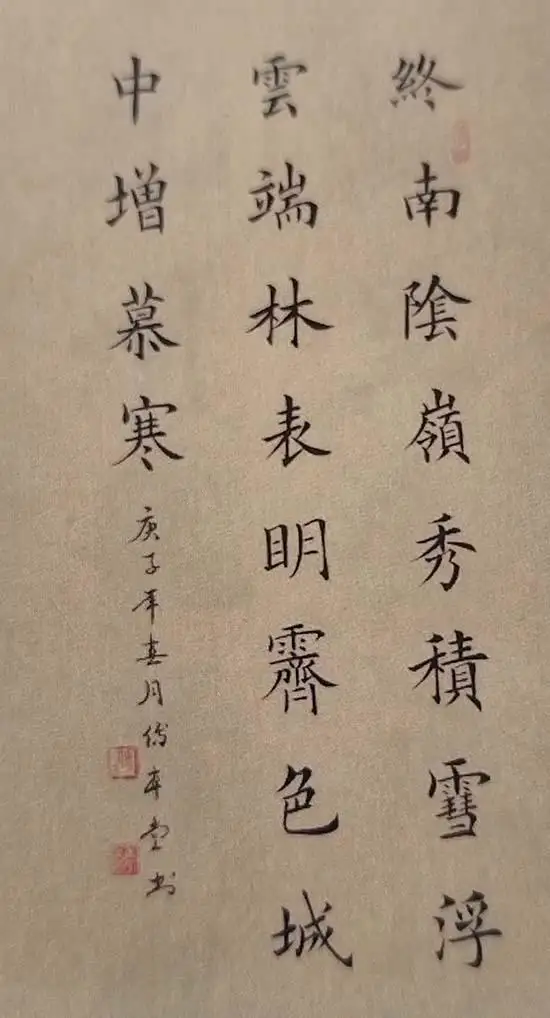 終南陰嶺秀積雪浮
雲端林表明霽色城
中增慕寒
庚子年春月 書